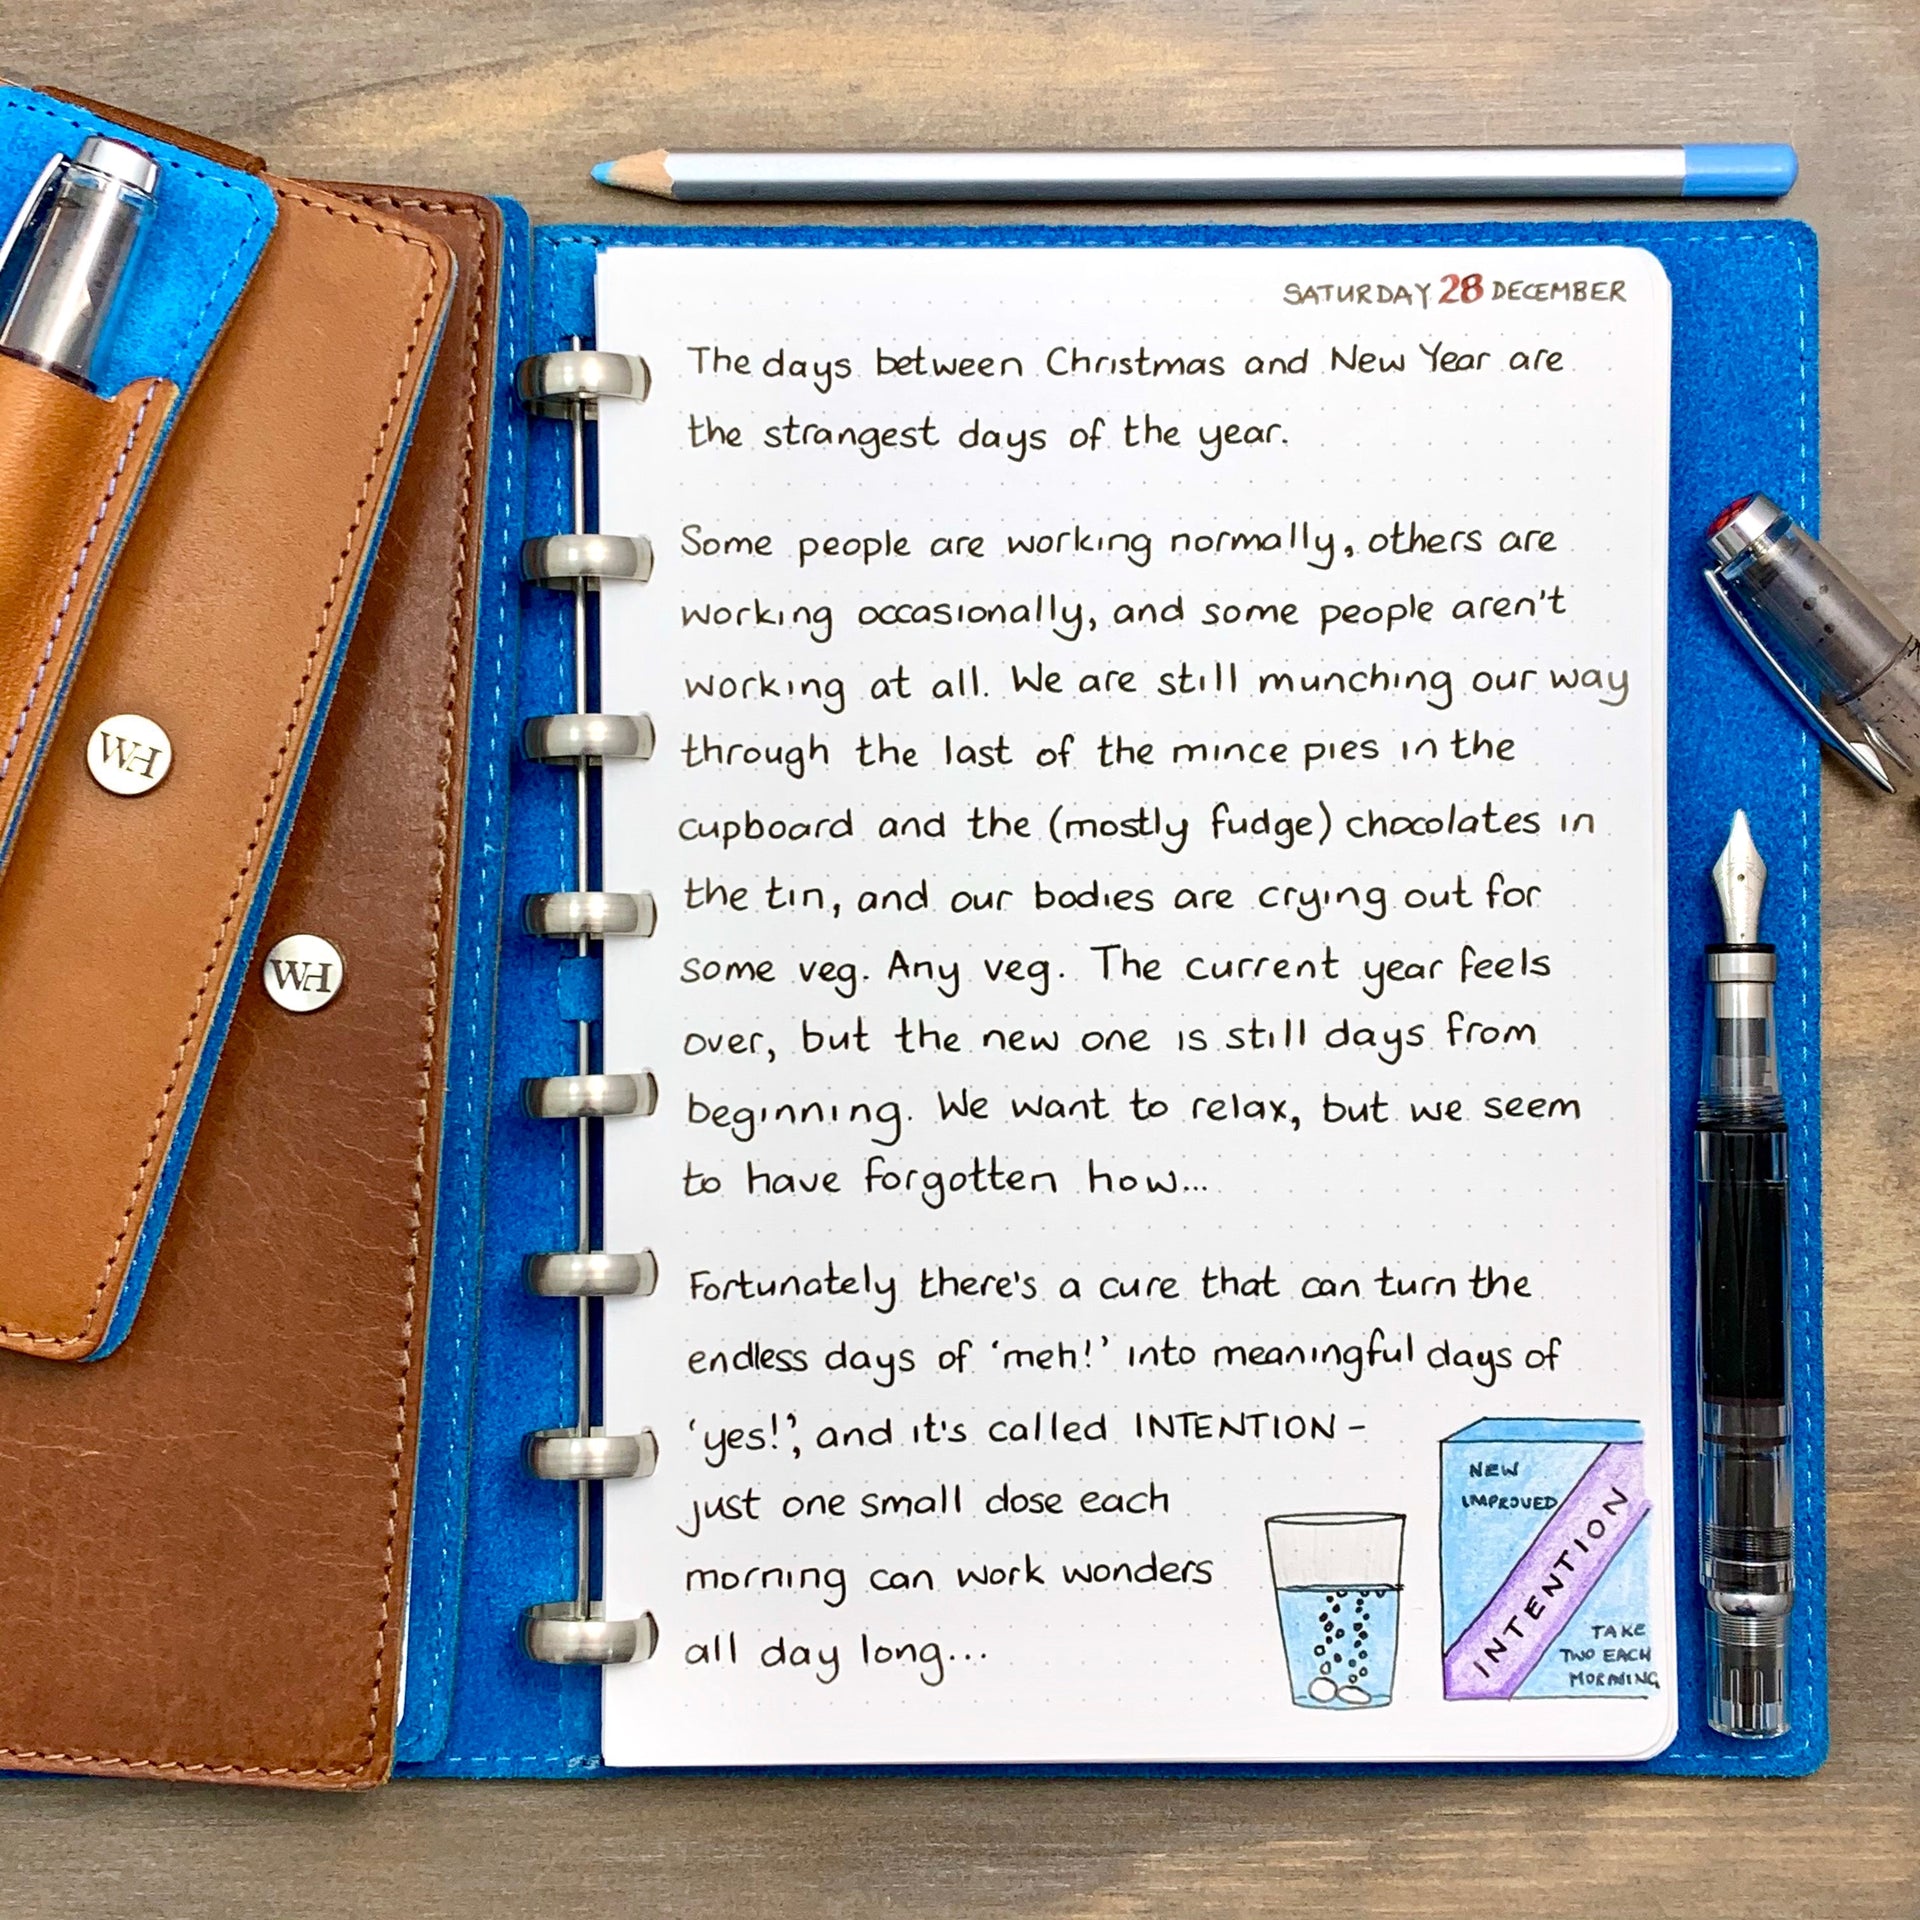 SATURDAY 28 DECEMBER
The days between Christmas and New Year are
the strangest days of the year.
Some people are working normally, others are
working occasionally, and some people aren't
working at all. We are still munching our way
through the last of the mince pies in the
cupboard and the (mostly fudge) chocolates in
the tin, and our bodies are crying out for
some veg. Any veg. The current year feels
over, but the new one is still days from
beginning. We want to relax, but we seem
to have forgotten how...
Fortunately there's a cure that can turn the
endless days of 'meh!' into meaningful days of
'yes!', and it's called INTENTION -
just one small dose each
morning can work wonders
all day long...
NEW
IMPROVED
INTENTION
TAKE
TWO EACH
MORNING
WH
WH